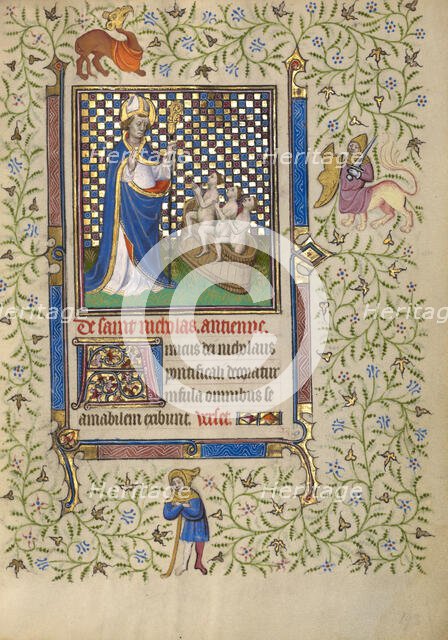 De saint nicholas. antienne.
Amicus dei nicholaus
pontificali decoratus
infula omnibus se
amabilem exibuit. verset
Heritage
Heritage
Heritage
Heritage
Heritage
Heritage
C